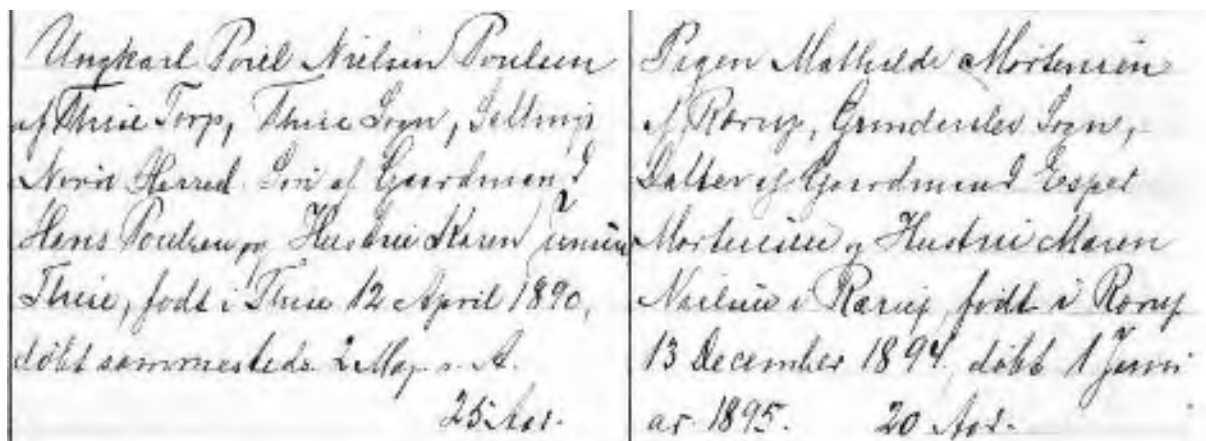 Ungkarl Poul Nielsen Poulsen
af Thise Torp, Thise Sogn, Salling
Nørre Herred. Søn af Gaardmand
Hans Poulsen og Hustru Karen
Thise, født i Thise 12 April 1890,
døbt sammesteds 2 May s. A.
25 Aar.
Pigen Mathilde Mortensen
af Rærup, Grinderslev Sogn,
Datter af Gaardmand Esper
Mortensen og Hustru Maren
Nielsen i Rærup, født i Rærup
13 December 1894, døbt 1 Janu
ar 1895. 20 Aar.